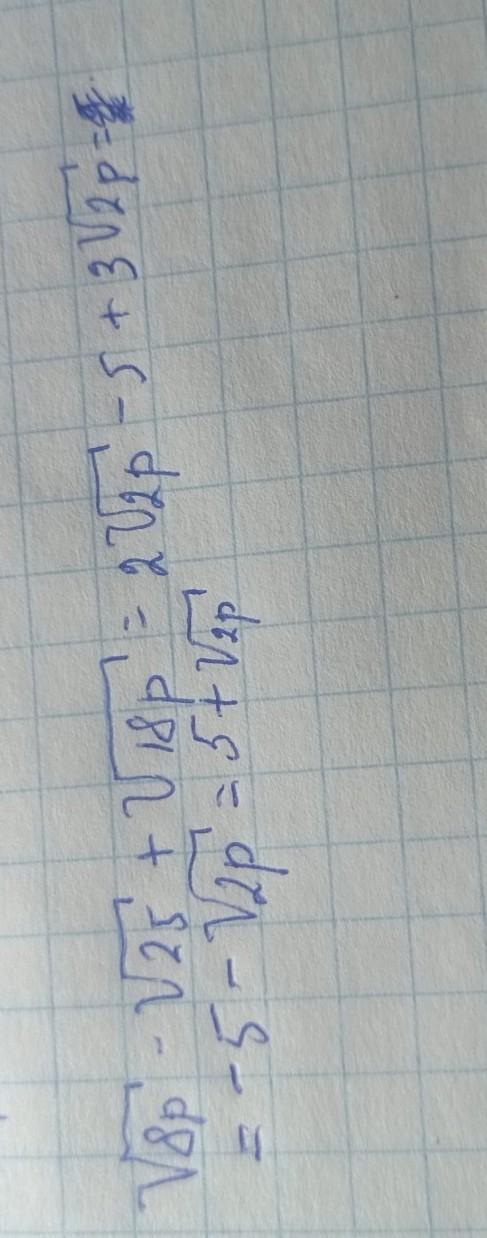 √8p - √25 + √18p = 2√2p - 5 + 3√2p =
= - 5 - √2p = 5 + √2p